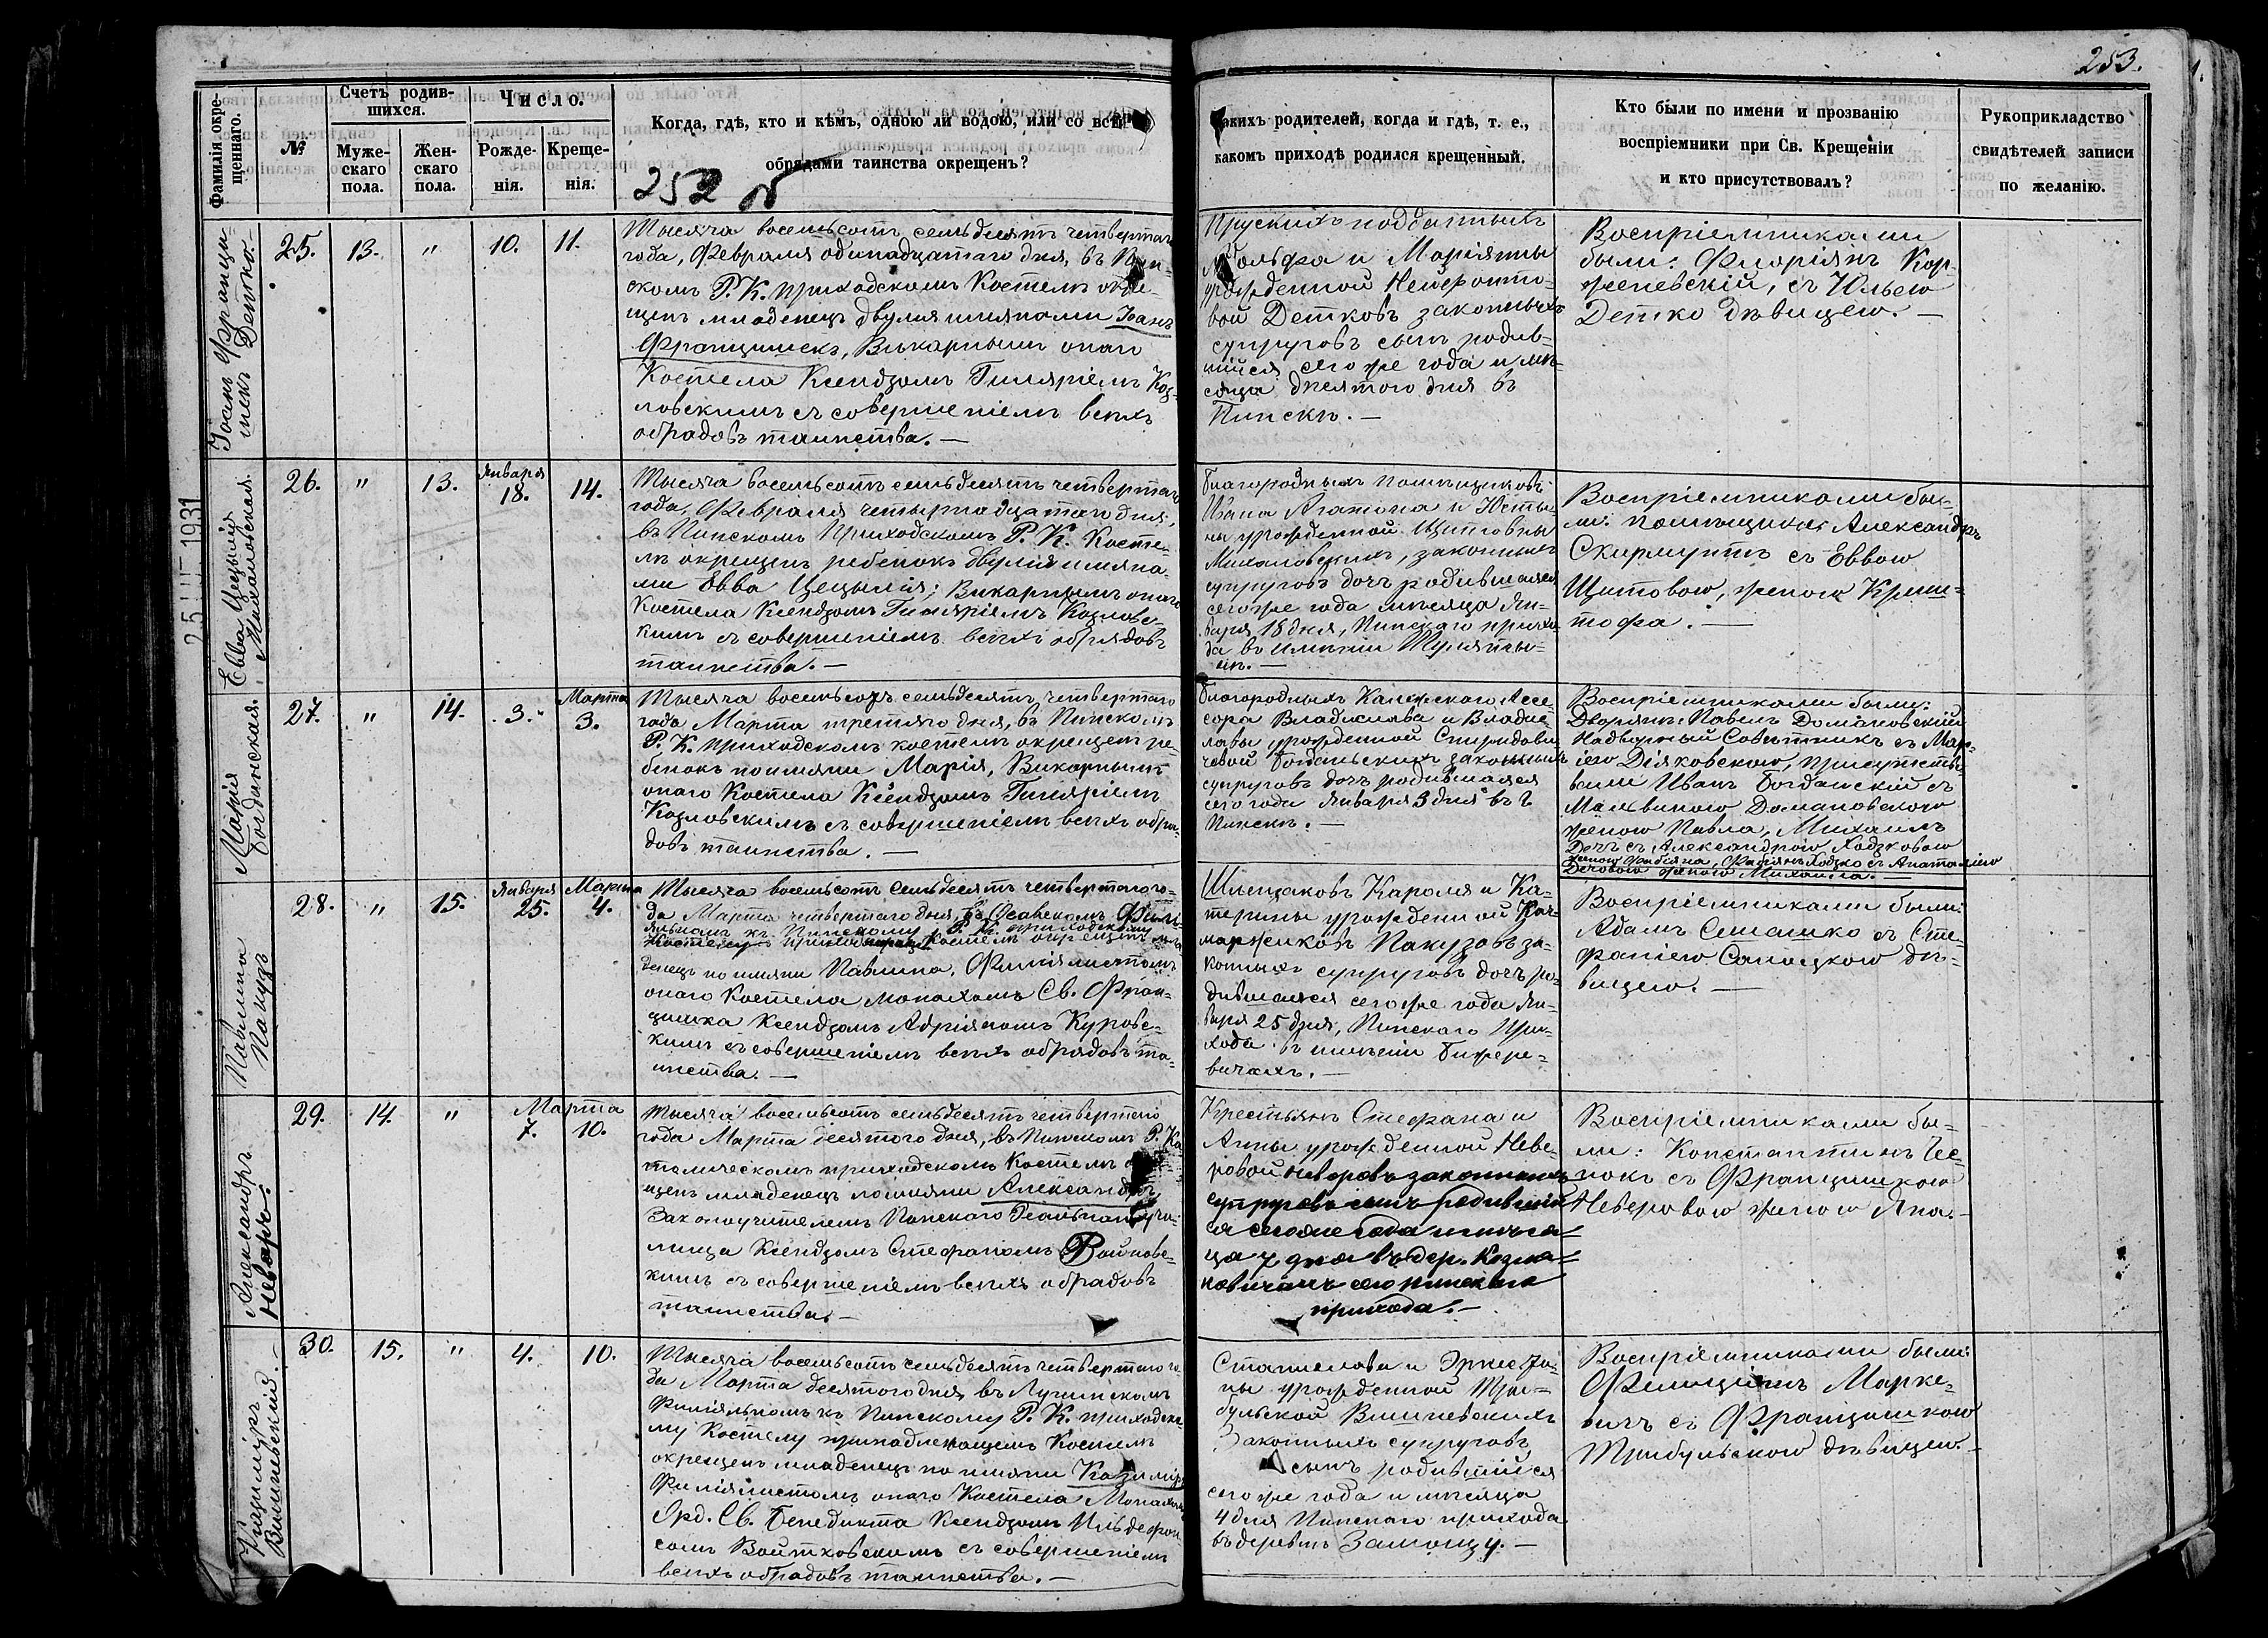 253.
Фамилія окре-
щеннаго.
№
Счетъ родив-
шихся.
Муже-
скаго
пола.
Жен-
скаго
пола.
Число.
Рожде-
нія.
Креще-
нія.
Когда, гдѣ, кто и кѣмъ, одною ли водою, или со всѣми
обрядами таинства окрещенъ?
252 об
каких родителей, когда и гдѣ, т. е.,
какомъ приходѣ родился крещенный.
Кто были по имени и прозванію
воспріемники при Св. Крещеніи
и кто присутствовалъ?
Рукоприкладство
свидѣтелей записи
по желанію.
Іоанъ Францы-
шекъ Детко.
25.
13.
"
10.
11.
Тысяча восемьсотъ семьдесятъ четвертаго
года, Февраля одинадцатаго дня, въ Пин-
скомъ Р. К. приходскомъ Костелѣ окре-
щенъ младенецъ двумя имянами Іоанъ
Францишекъ, Викарнымъ онаго
Костела Ксендзомъ Гиляріемъ Коз-
ловскимъ съ совершеніемъ всѣхъ
обрадовъ таинства. —
Прускихъ подданныхъ
и Маріянны
урожденной
Детковъ законныхъ
супруговъ сынъ родив-
шійся сего же года и мѣ-
сяца десятого дня въ
Пинскѣ. —
Воспріемниками
были: Флоріянъ Кор-
женевскій, съ Юльею
Детко дѣвицею. —
Евва Цецылія
Михаловская.
26.
"
13.
Января
18.
14.
Тысяча восемьсотъ семьдесятъ четвертаго
года, Февраля четырнадцатаго дня,
въ Пинскомъ Приходскомъ Р. К. Косте-
лѣ окрещенъ ребенокъ двумя имяна-
ми Евва Цецылія; Викарнымъ онаго
Костела Ксендзомъ Гиляріемъ Козловс-
кимъ съ совершеніемъ всѣхъ обрядовъ
таинства. —
Благородныхъ помѣщиковъ
Ивана Агатона и Юсты-
ны урожденной Щитовны
Михаловскихъ, законныхъ
супруговъ дочъ родившаяся
сегоже года мѣсяца Ян-
варя 18 дня, Пинскаго прихо-
да въ имѣніи
Воспріемниками бы-
ли: помѣщики Александръ
Скирмунтъ съ Еввою
Щитовою, женою Криш-
тофа. —
Марія
Богданская.
27.
"
14.
3.
Марта
3.
Тысяча восемьсотъ семьдесятъ четвертаго
года Марта третяго дня, въ Пинскомъ
Р. К. приходскомъ костелѣ окрещенъ ре-
бенокъ по имяни Марія, Викарнымъ
онаго Костела Ксендзомъ Гиляріемъ
Козловскимъ съ совершеніемъ всѣхъ обра-
довъ таинства. —
Благородныхъ Ассе-
сора Владислава и Владис-
лавы урожденной Спиридови-
човой Богданскихъ законныхъ
супруговъ дочъ родившаяся
сего года Января 3 дня въ г
Пинскѣ. —
Воспріемниками были:
Дворяне: Павелъ Домановскій
Надворный Совѣтникъ съ Мар-
іею Дяковскою, присутство-
вали Иванъ Богданскій съ
Мальвиною Домановскою
женою Павла, Михаилъ
Дечъ съ Александрою Ходзковою
женою Фабіяна, Фабіянъ Ходзко съ Анатоліею
Дечовою женою Михаила. —
Павлина
Пакузъ
28.
"
15.
Января
25.
Марта
4.
Тысяча восемьсотъ семьдесятъ четвертаго го-
да Марта четвертаго дня въ Филі-
яльномъ къ Пинскому Р. К. приходскому
Костелѣ окрещенъ мла-
денецъ по имяни Павлина, Филіялистомъ
онаго Костела монахомъ Св. Фран-
цишка Ксендзомъ Адріяномъ Куровс-
кимъ съ совершеніемъ всѣхъ обрядовъ та-
инства. —
Кароля и Ка-
терины урожденной Кач-
маржиковъ Пакузовъ за-
конныхъ супруговъ дочъ ро-
дившаяся сегоже года Ян-
варя 25 дня, Пинскаго При-
хода въ имѣніи Бижере-
вичахъ. —
Воспріемниками были:
Адамъ Семашко съ Сте-
фаніею Савицкою дѣ-
вицею. —
Александръ
Неверъ.
29.
14.
"
Марта
7.
10.
Тысяча восемьсотъ семьдесятъ четвертаго
года Марта десятого дня, въ Пинскомъ Р. Ка-
толическомъ приходскомъ Костелѣ окре-
щенъ младенецъ по имяни Александръ,
Законоучителемъ Пинскаго Реальнаго учи-
лища Ксендзомъ Стефаномъ Войновс-
кимъ съ совершеніемъ всѣхъ обрадовъ
таинства. —
Крестьянъ Стефана и
Анны урожденной Неве-
ровой Неверовъ законныхъ
супруговъ сынъ родившій-
ся сегоже года и мѣся-
ца 7 дня въ дер. Козля-
ковичахъ сего Пинскаго
прихода. —
Воспріемниками бы-
ли: Константинъ Чес-
нокъ съ Францишкою
Неверовою женою Яна. —
Казиміръ
Вишневскій. —
30.
15.
"
4.
10.
Тысяча восемьсотъ семьдесятъ четвертаго го-
да Марта десятого дня въ Лучинскомъ
Филіяльномъ къ Пинскому Р. К. приходско-
му Костелу принадлежащемъ Костелѣ
окрещенъ младенецъ по имяни Казиміръ
Филіялистомъ онаго Костела Монахомъ
Орд. Св. Бенедикта Ксендзомъ Ильдефон-
сомъ Войтховскимъ съ совершеніемъ
всѣхъ обрадовъ таинства. —
Станислава и Эрнести-
ны урожденной Тры-
бульской Вишневскихъ
Законныхъ супруговъ
сынъ родившійся
сегоже года и мѣсяца
4 дня Пинскаго прихода
въ деревнѣ Замошу. —
Воспріемниками были:
Фелиціянъ Марке-
вичъ съ Францишкою
Трибульскою дѣвицею. —
1931